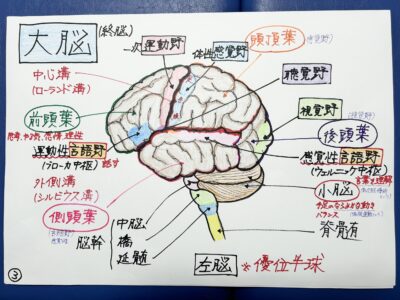 大脳 (終脳)
一次運動野
体性感覚野
頭頂葉
(感覚野)
中心溝
(ローランド溝)
聴覚野
前頭葉
視覚野
(視覚野)
後頭葉
運動性言語野
(ブローカ中枢) 話す
感覚性言語野
(ウェルニッケ中枢)
言葉を理解
外側溝
(シルビウス溝)
小脳
バランス
側頭葉
中脳
脳幹 橋
延髄
脊髄
左脳 *優位半球
3